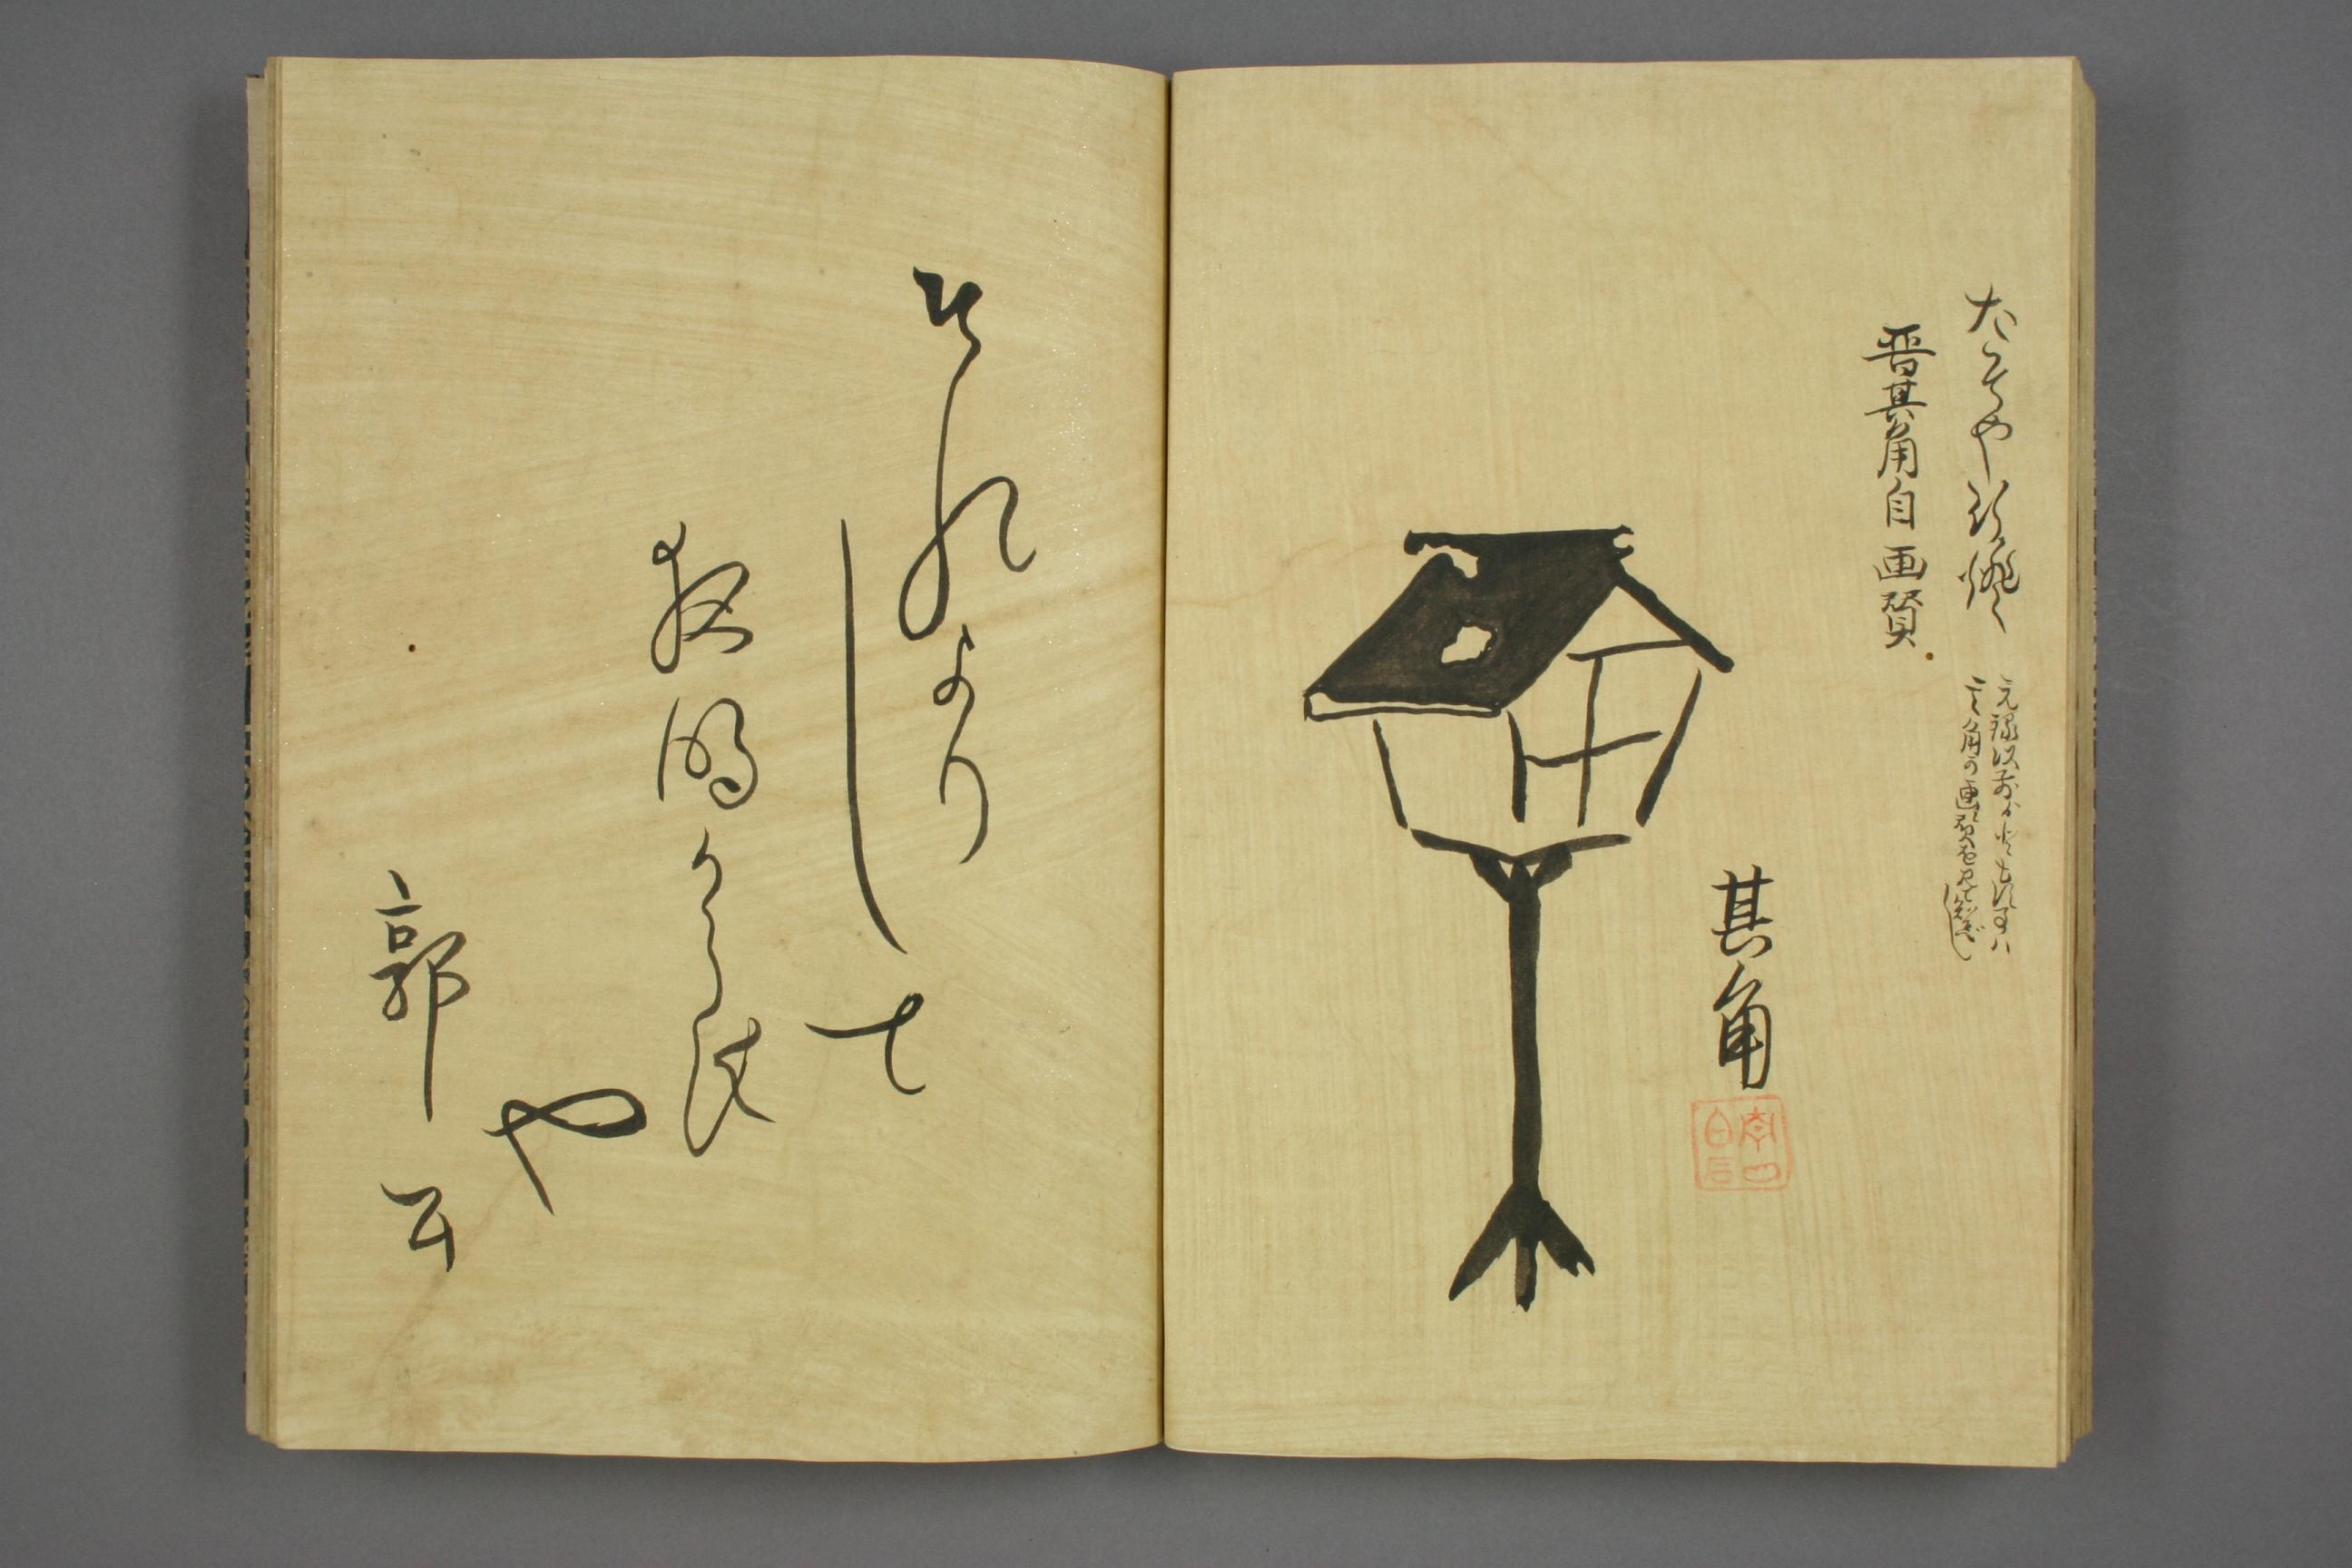 たそや行燈
元禄以前
角の画賛を見て知べし
晋其角自画賛
其角
それより
して
夜明からす
や
郭公